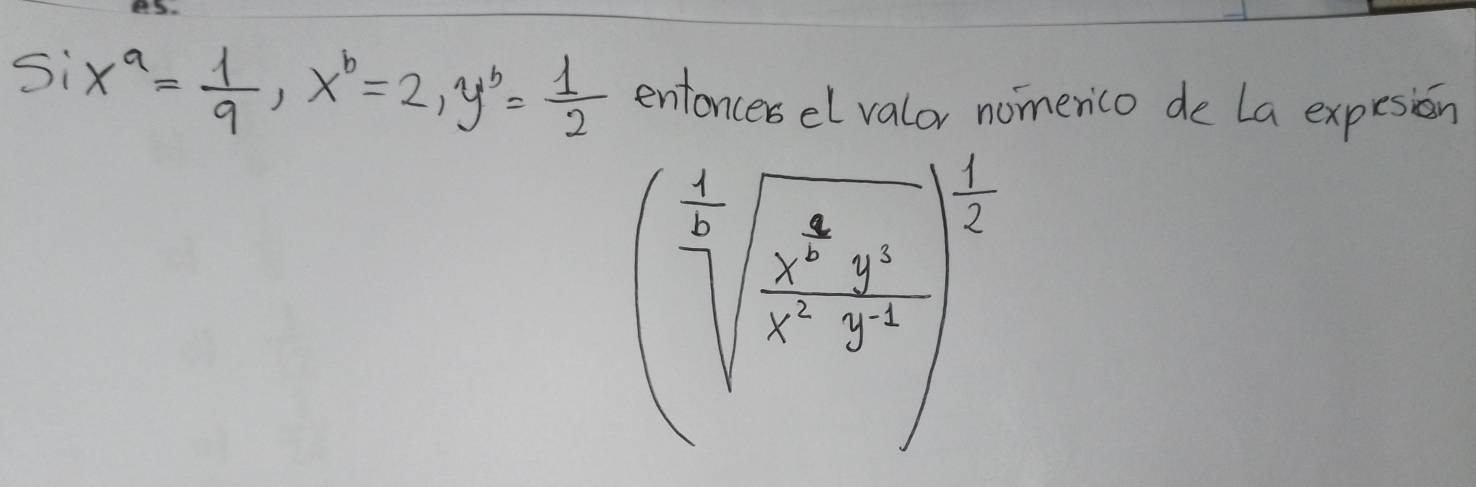 es.
Si x^a = 1/9, x^b = 2, y^b = 1/2 entonces el valor nümerico de La expresión
( \sqrt[1/b]{ (x^{a/b} y^3) / (x^2 y^{-1}) } )^{1/2}